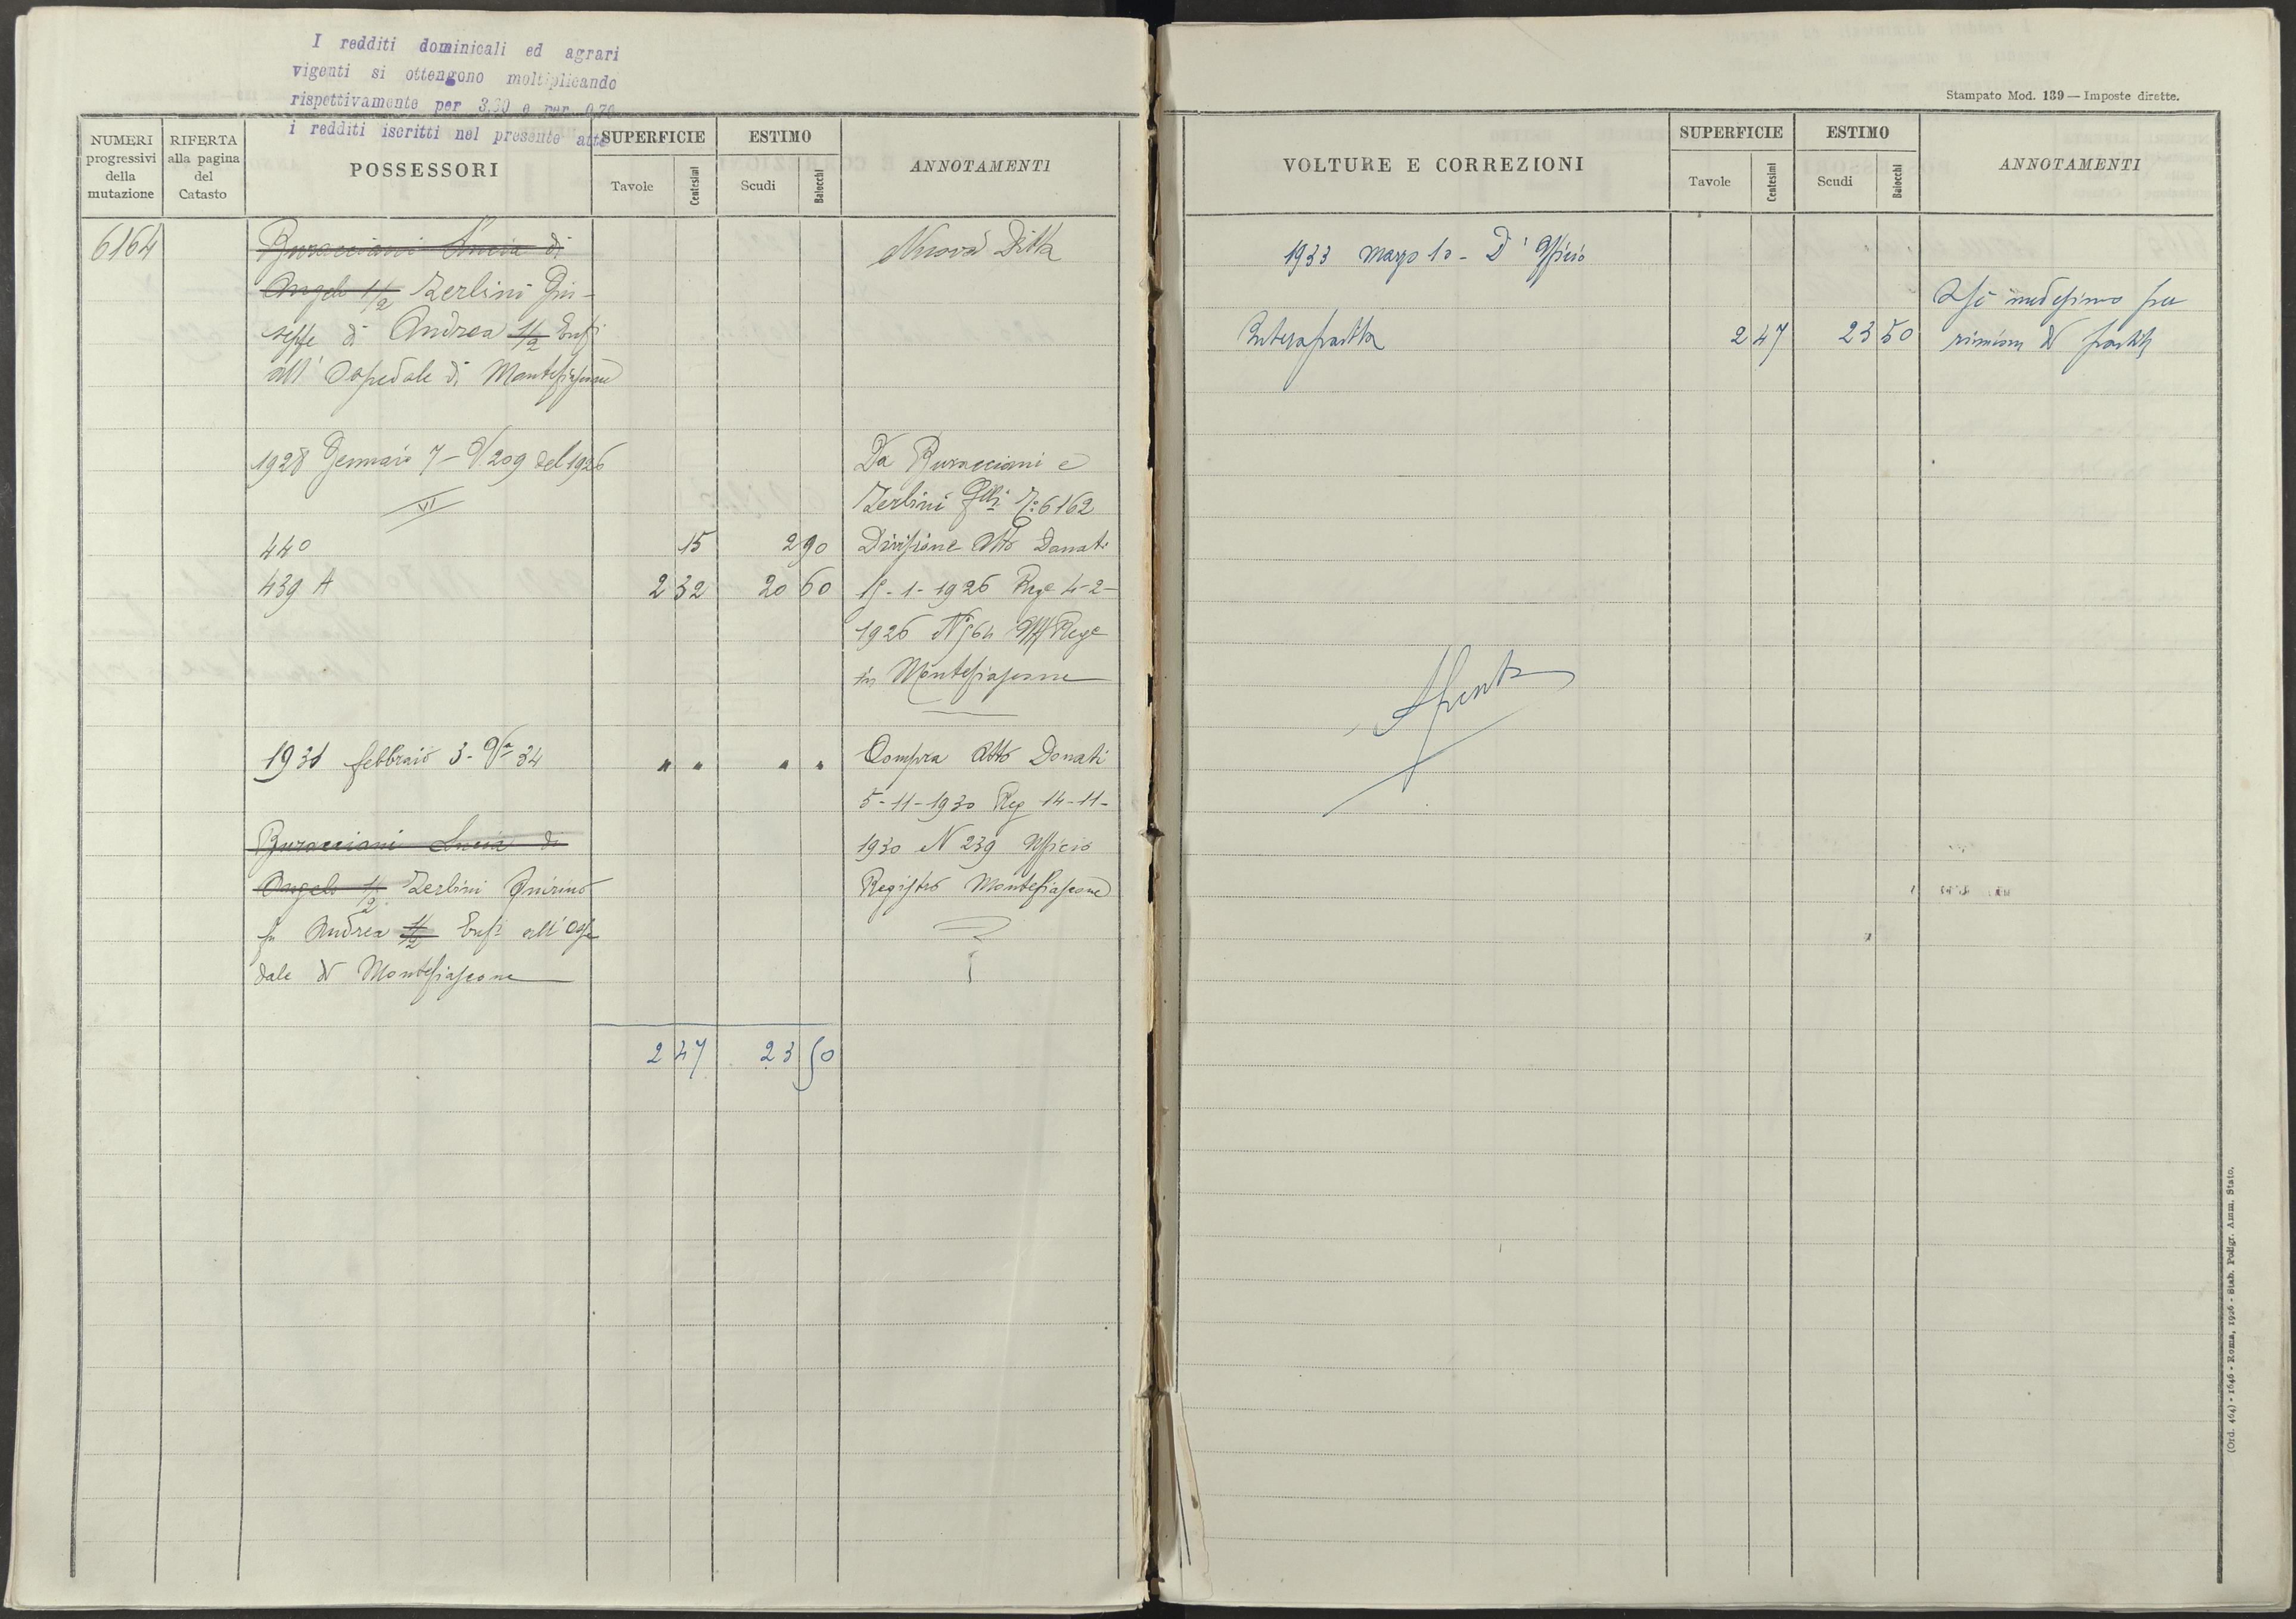 I redditi dominicali ed agrari
vigenti si ottengono moltiplicando
rispettivamente per 3.30 e per 0.70
i redditi iscritti nel presente atto
NUMERI progressivi della mutazione
RIFERTA alla pagina del Catasto
POSSESSORI
SUPERFICIE
Tavole Centesimi
ESTIMO
Scudi Baiocchi
ANNOTAMENTI
6164 Buracciani Lucia di Nuova Ditta
Angelo 1/2 Zerbini Giu-
seppe di Andrea 1/2 Enfi
all' Ospedale di Montefiascone
1928 Gennaio 7 - V. 209 del 1926 Da Buracciani e
VI Zerbini 6162
440 15 2 90 Divisione Atto Donati
439 A 2 32 20 60 15-1-1926 Reg 4-2-
1926 Uff Reg
in Montefiascone
1931 febbraio 3 - 34 " " " " Compra Atto Donati
5-11-1930 Reg 14-11-
Buracciani Lucia di 1930 N 239 Ufficio
Angelo 1/2 Zerbini Quirino Registro Montefiascone
fu Andrea 1/2 Enfi all' Ospe
dale di Montefiascone
2 47 23 50
Stampato Mod. 139 — Imposte dirette.
VOLTURE E CORREZIONI
SUPERFICIE
Tavole Centesimi
ESTIMO
Scudi Baiocchi
ANNOTAMENTI
1933 marzo 10 - D' Ufficio
A sè medesimo per
Intera partita 2 47 23 50 riunione di partite
Spenta
(Ord. 464) - 1646 - Roma, 1926 - Stab. Poligr. Amm. Stato.